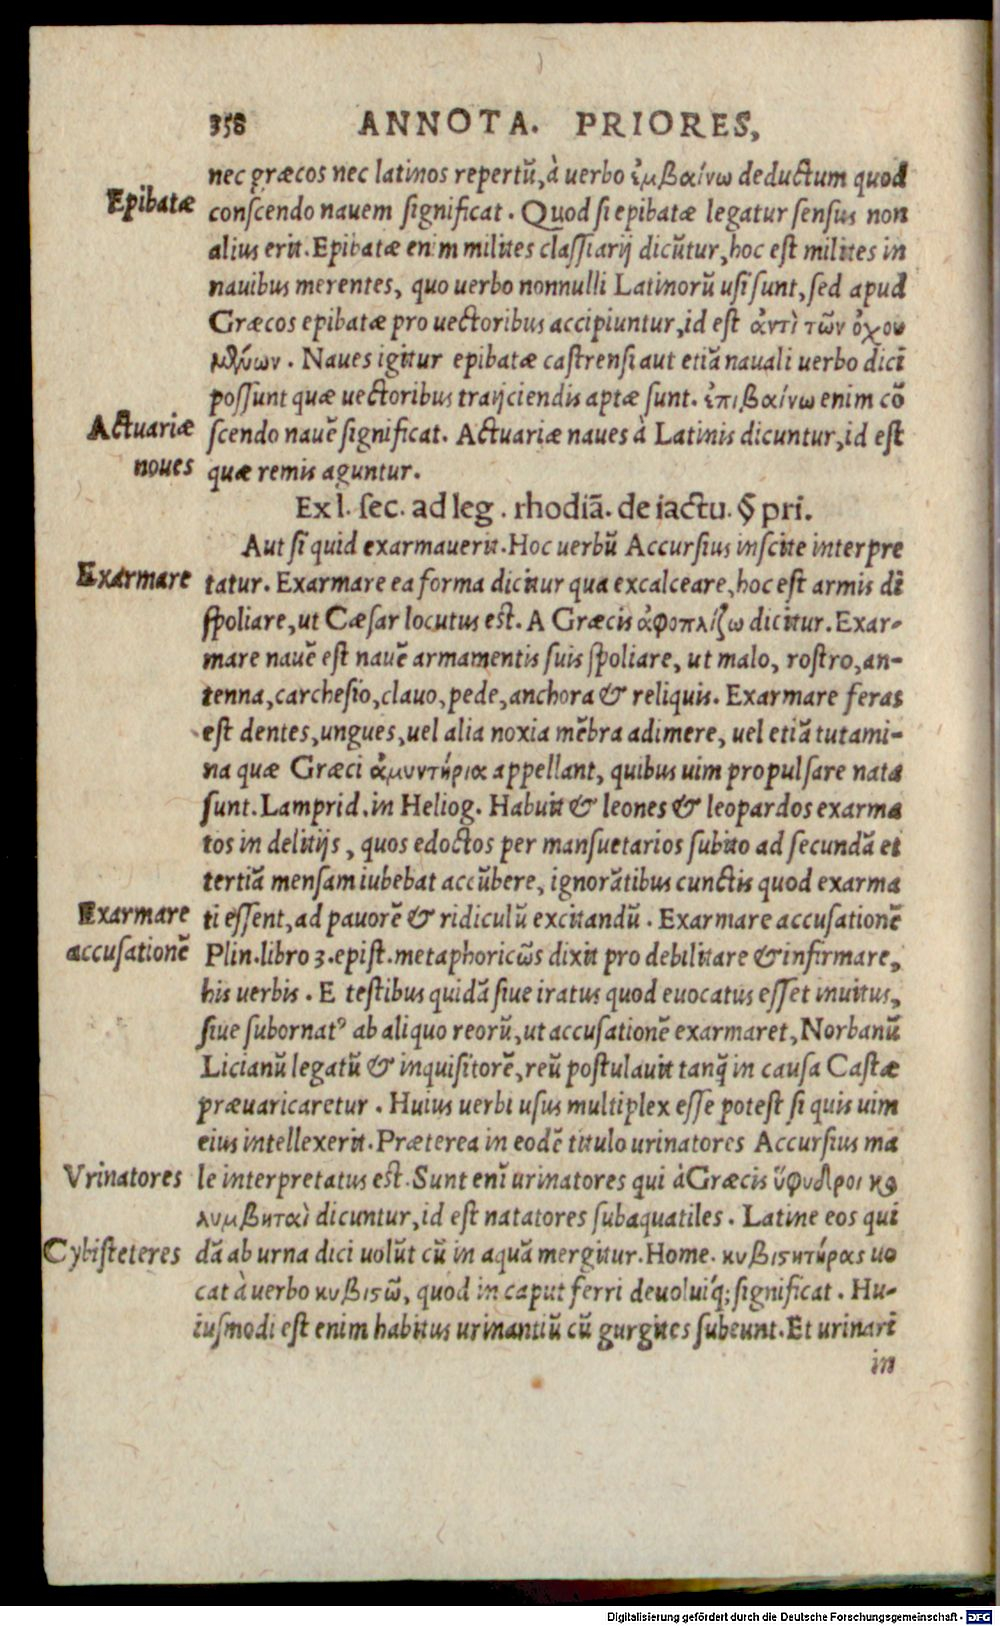 358 ANNOTA. PRIORES,
nec græcos nec latinos repertũ, à uerbo ἐμβαίνω deductum quod
Epibatæ
conscendo nauem significat. Quod si epibatæ legatur sensus non
alius erit. Epibatæ enim milites classiarij dicũtur, hoc est milites in
nauibus merentes, quo uerbo nonnulli Latinorũ usi sunt, sed apud
Græcos epibatæ pro uectoribus accipiuntur, id est ἀντὶ τῶν ὀχου
μένων. Naues igitur epibatæ castrensi aut etiã nauali uerbo dici
possunt quæ uectoribus traijciendis aptæ sunt. ἐπιβαίνω enim cõ
Actuariæ
scendo nauẽ significat. Actuariæ naues à Latinis dicuntur, id est
noues
quæ remis aguntur.
Ex l. sec. ad leg. rhodiã. de iactu. § pri.
Aut si quid exarmauerit. Hoc uerbũ Accursius inscite interpre
Exarmare
tatur. Exarmare ea forma dicitur qua excalceare, hoc est armis di
spoliare, ut Cæsar locutus est. A Græcis ἀφοπλίζω dicitur. Exar-
mare nauẽ est nauẽ armamentis suis spoliare, ut malo, rostro, an-
tenna, carchesio, clauo, pede, anchora & reliquis. Exarmare feras
est dentes, ungues, uel alia noxia mẽbra adimere, uel etiã tutami-
na quæ Græci ἀμυντήρια appellant, quibus uim propulsare nata
sunt. Lamprid. in Heliog. Habuit & leones & leopardos exarma
tos in delitijs, quos edoctos per mansuetarios subito ad secundã et
tertiã mensam iubebat accũbere, ignorãtibus cunctis quod exarma
Exarmare
ti essent, ad pauorẽ & ridiculũ excitandũ. Exarmare accusationẽ
accusationẽ
Plin. libro 3. epist. metaphoricῶs dixit pro debilitare & infirmare,
his uerbis. E testibus quidã siue iratus quod euocatus esset inuitus,
siue subornatꝰ ab aliquo reorũ, ut accusationẽ exarmaret, Norbanũ
Licianũ legatũ & inquisitorẽ, reũ postulauit tanq̃ in causa Castæ
præuaricaretur. Huius uerbi usus multiplex esse potest si quis uim
eius intellexerit. Præterea in eodẽ titulo urinatores Accursius ma
Vrinatores
le interpretatus est. Sunt enĩ urinatores qui à Græcis ὕφυδροι κο
λυμβηταὶ dicuntur, id est natatores subaquatiles. Latine eos qui
Cybisteteres
dã ab urna dici uolũt cũ in aquã mergitur. Home. κυβιστητήρας uo
cat à uerbo κυβιστῶ, quod in caput ferri deuoluiq́; significat. Hu-
iusmodi est enim habitus urinantiũ cũ gurgites subeunt. Et urinari
in
Digitalisierung gefördert durch die Deutsche Forschungsgemeinschaft - DFG